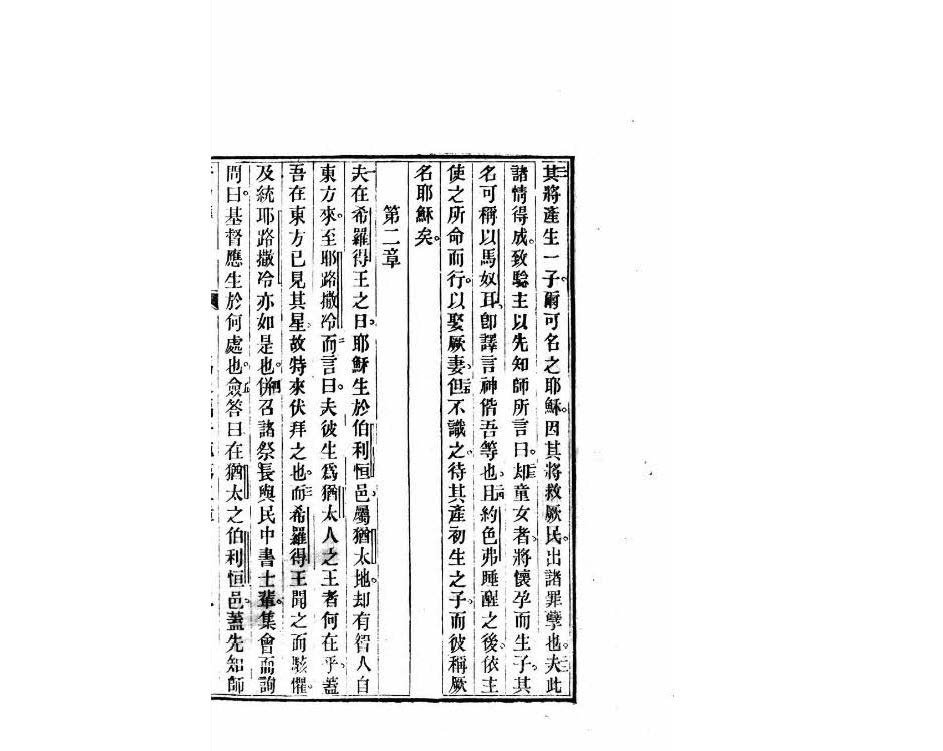 其將產生一子。爾可名之耶穌。因其將救厥民。出諸罪孽也。夫此
諸情得成。致騐主以先知師所言曰。却童女者。將懷孕而生子。其
名可稱以馬奴耳。卽譯言神偕吾等也。且約色弗睡醒之後。依主
使之所命而行。以娶厥妻。但不識之。待其產初生之子。而彼稱厥
名耶穌矣。
第二章
夫在希羅得王之日。耶穌生於伯利恒邑。屬猶太地。却有智人自
東方來。至耶路撒冷而言曰。夫彼生爲猶太人之王者何在乎。蓋
吾在東方已見其星。故特來伏拜之也。而希羅得王聞之而駭懼。
及統耶路撒冷亦如是也。併召諸祭長與民中書士輩集會而詢
問曰。基督應生於何處也。僉答曰。在猶太之伯利恒邑。蓋先知師